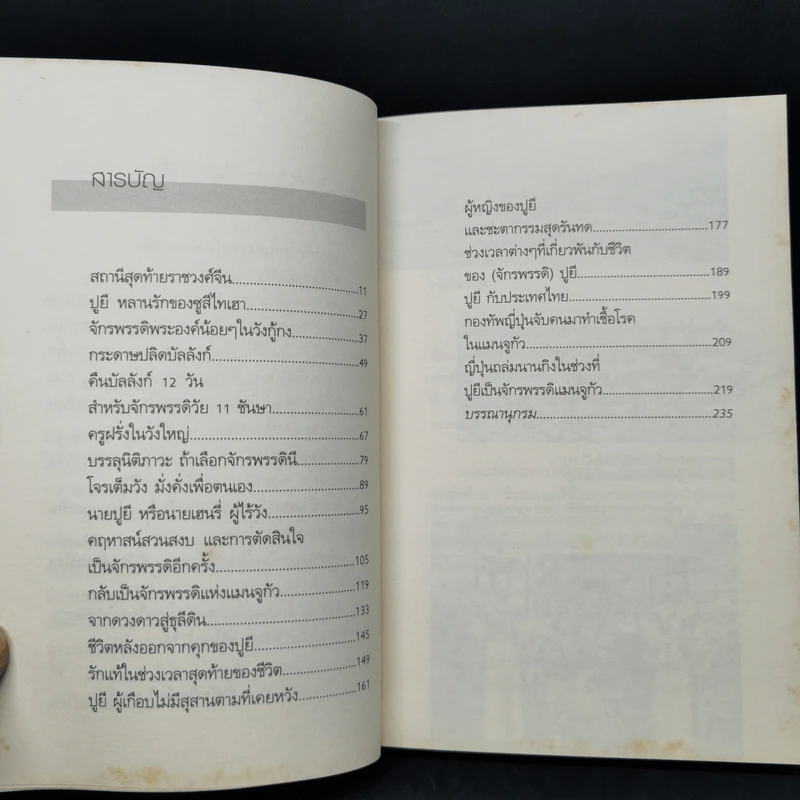 สารบัญ
สถานีสุดท้ายราชวงศ์จีน........................11
ปูยี หลานรักของซูสีไทเฮา........................27
จักรพรรดิพระองค์น้อยๆในวังกู้กง................37
กระดาษปลิดบัลลังก์........................49
คืนบัลลังก์ 12 วัน
สำหรับจักรพรรดิวัย 11 ชันษา................61
ครูฝรั่งในวังใหญ่........................67
บรรลุนิติภาวะ ถ้าเลือกจักรพรรดินี................79
โจรเต็มวัง มั่งคั่งเพื่อตนเอง................89
นายปูยี หรือนายเฮนรี่ ผู้ไร้วัง................95
คฤหาสน์สวนสงบ และการตัดสินใจ
เป็นจักรพรรดิอีกครั้ง........................105
กลับเป็นจักรพรรดิแห่งแมนจูกัว................119
จากดวงดาวสู่ธุลีดิน........................133
ชีวิตหลังออกจากคุกของปูยี................145
รักแท้ในช่วงเวลาสุดท้ายของชีวิต................149
ปูยี ผู้เกือบไม่มีสุสานตามที่เคยหวัง................161
ผู้หญิงของปูยี
และชะตากรรมสุดรันทด........................177
ช่วงเวลาต่างๆที่เกี่ยวพันกับชีวิต
ของ (จักรพรรดิ) ปูยี........................189
ปูยี กับประเทศไทย........................199
กองทัพญี่ปุ่นจับคนมาทำเชื้อโรค
ในแมนจูกัว........................209
ญี่ปุ่นถล่มนานกิงในช่วงที่
ปูยีเป็นจักรพรรดิแมนจูกัว................219
บรรณานุกรม........................235